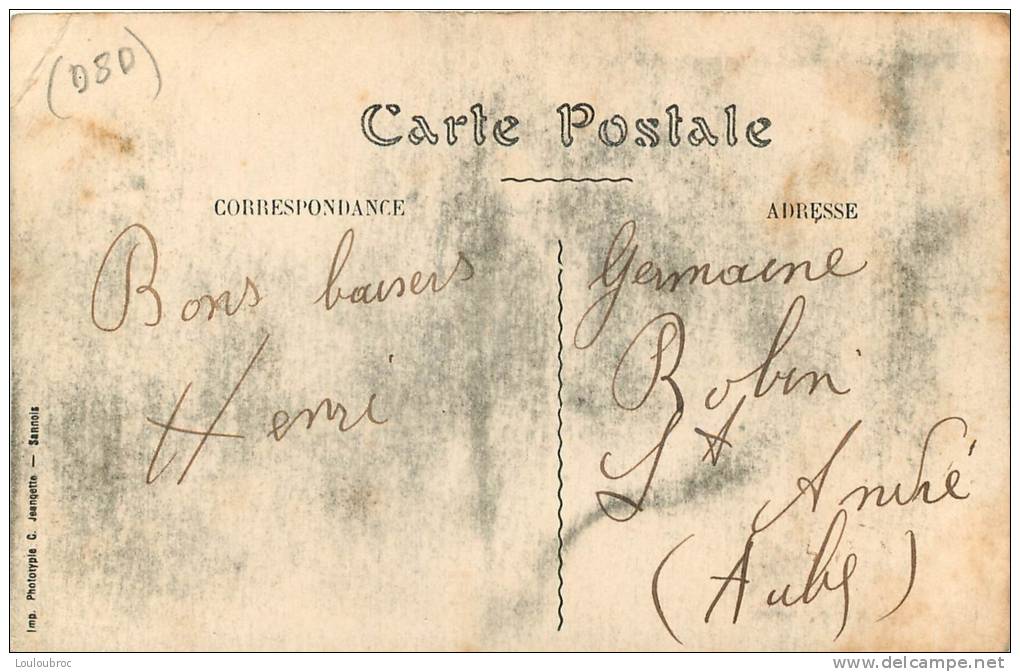 (D8D)
Carte Postale
CORRESPONDANCE
ADRESSE
Bons baisers
Henri
Germaine
Robin
St André
(Aube)
Imp. Phototypie C. Jeangette — Sannois
Louloubroc
delcampe.net